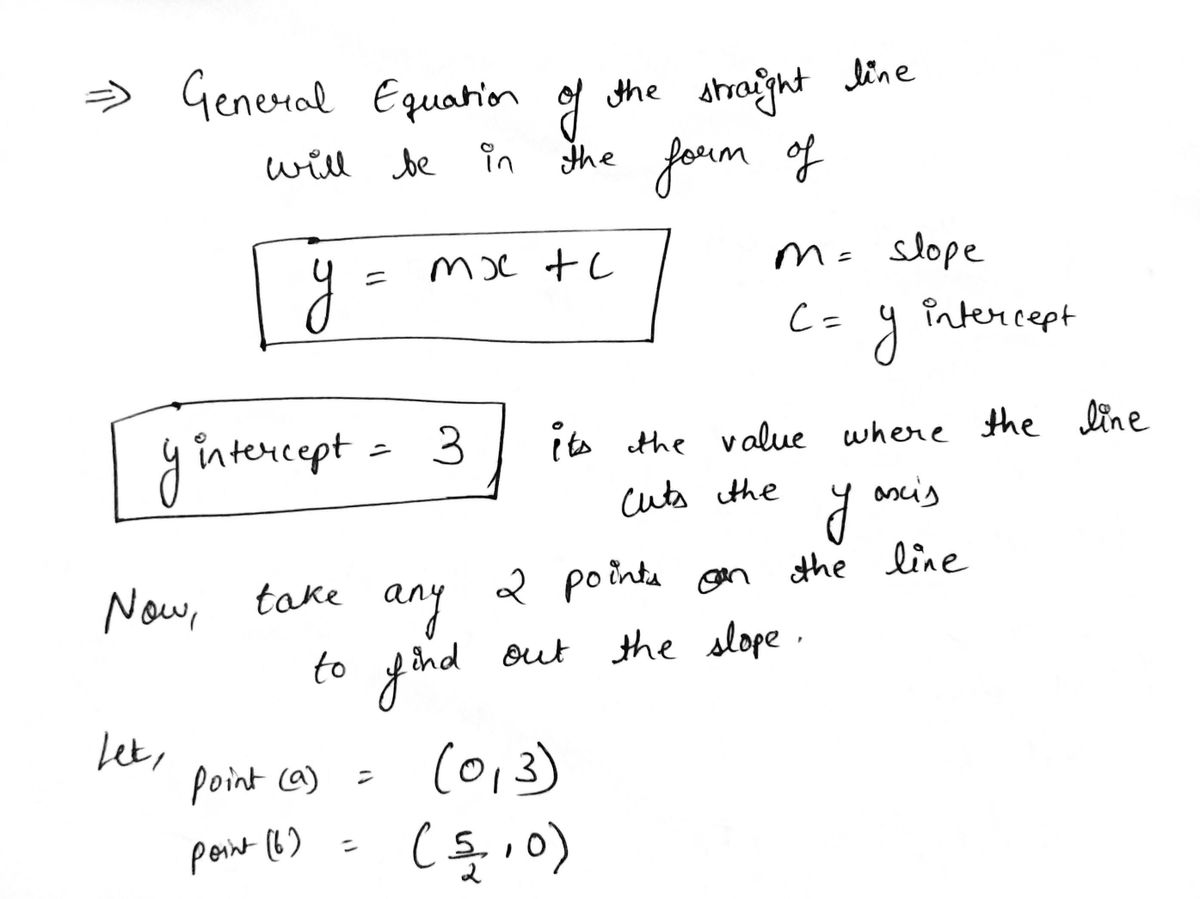 ⇒ General Equation of the straight line
will be in the form of
y = mx + c
m = slope
c = y intercept
y intercept = 3
its the value where the line
cuts the y axis
Now, take any 2 points on the line
to find out the slope.
Let,
point (a) = (0, 3)
point (b) = (5/2, 0)